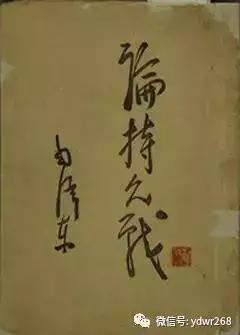 論持久戰
毛澤东
微信号: ydwr268